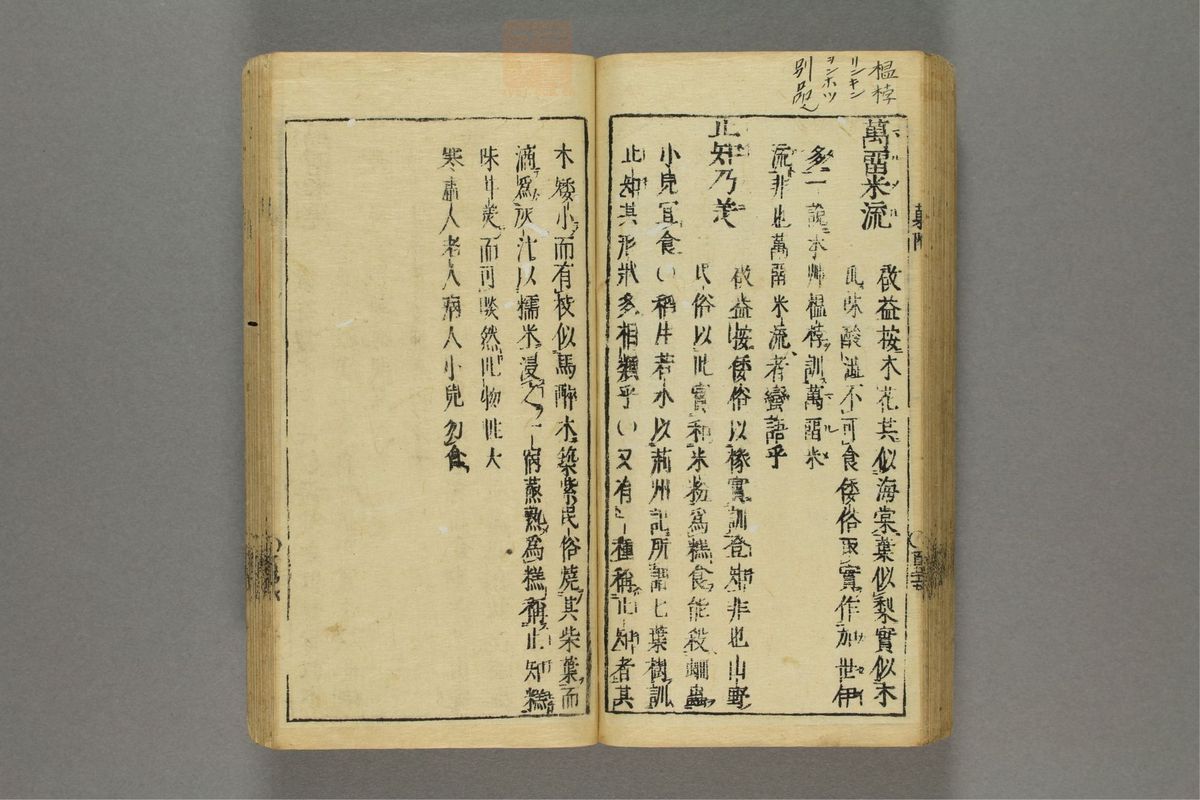 榲桲
リンキン
ヲンホツ
別品
萬畱米流
啟益按木花其似海棠葉似梨實似木
瓜味酸澁不可食倭俗取實作加世伊
多一說本艸榲桲訓萬畱米
流非也萬畱米流者蠻語乎
止知乃美
啟益按倭俗以橡實訓登知非也山野
民俗以此實和米粉為糕食能殺蚘蟲
小兒宜食○稱生若水以荊州記所謂七葉樹訓
止知其形狀多相類乎○又有一種稱止知者其
木矮小而有枝似馬醉木築紫民俗燒其柴葉而
滴為灰汁以糯米浸之一宿蒸熟為糕稱止知糕
味甘美而可啖然此物性大
寒虛人老人病人小兒勿食